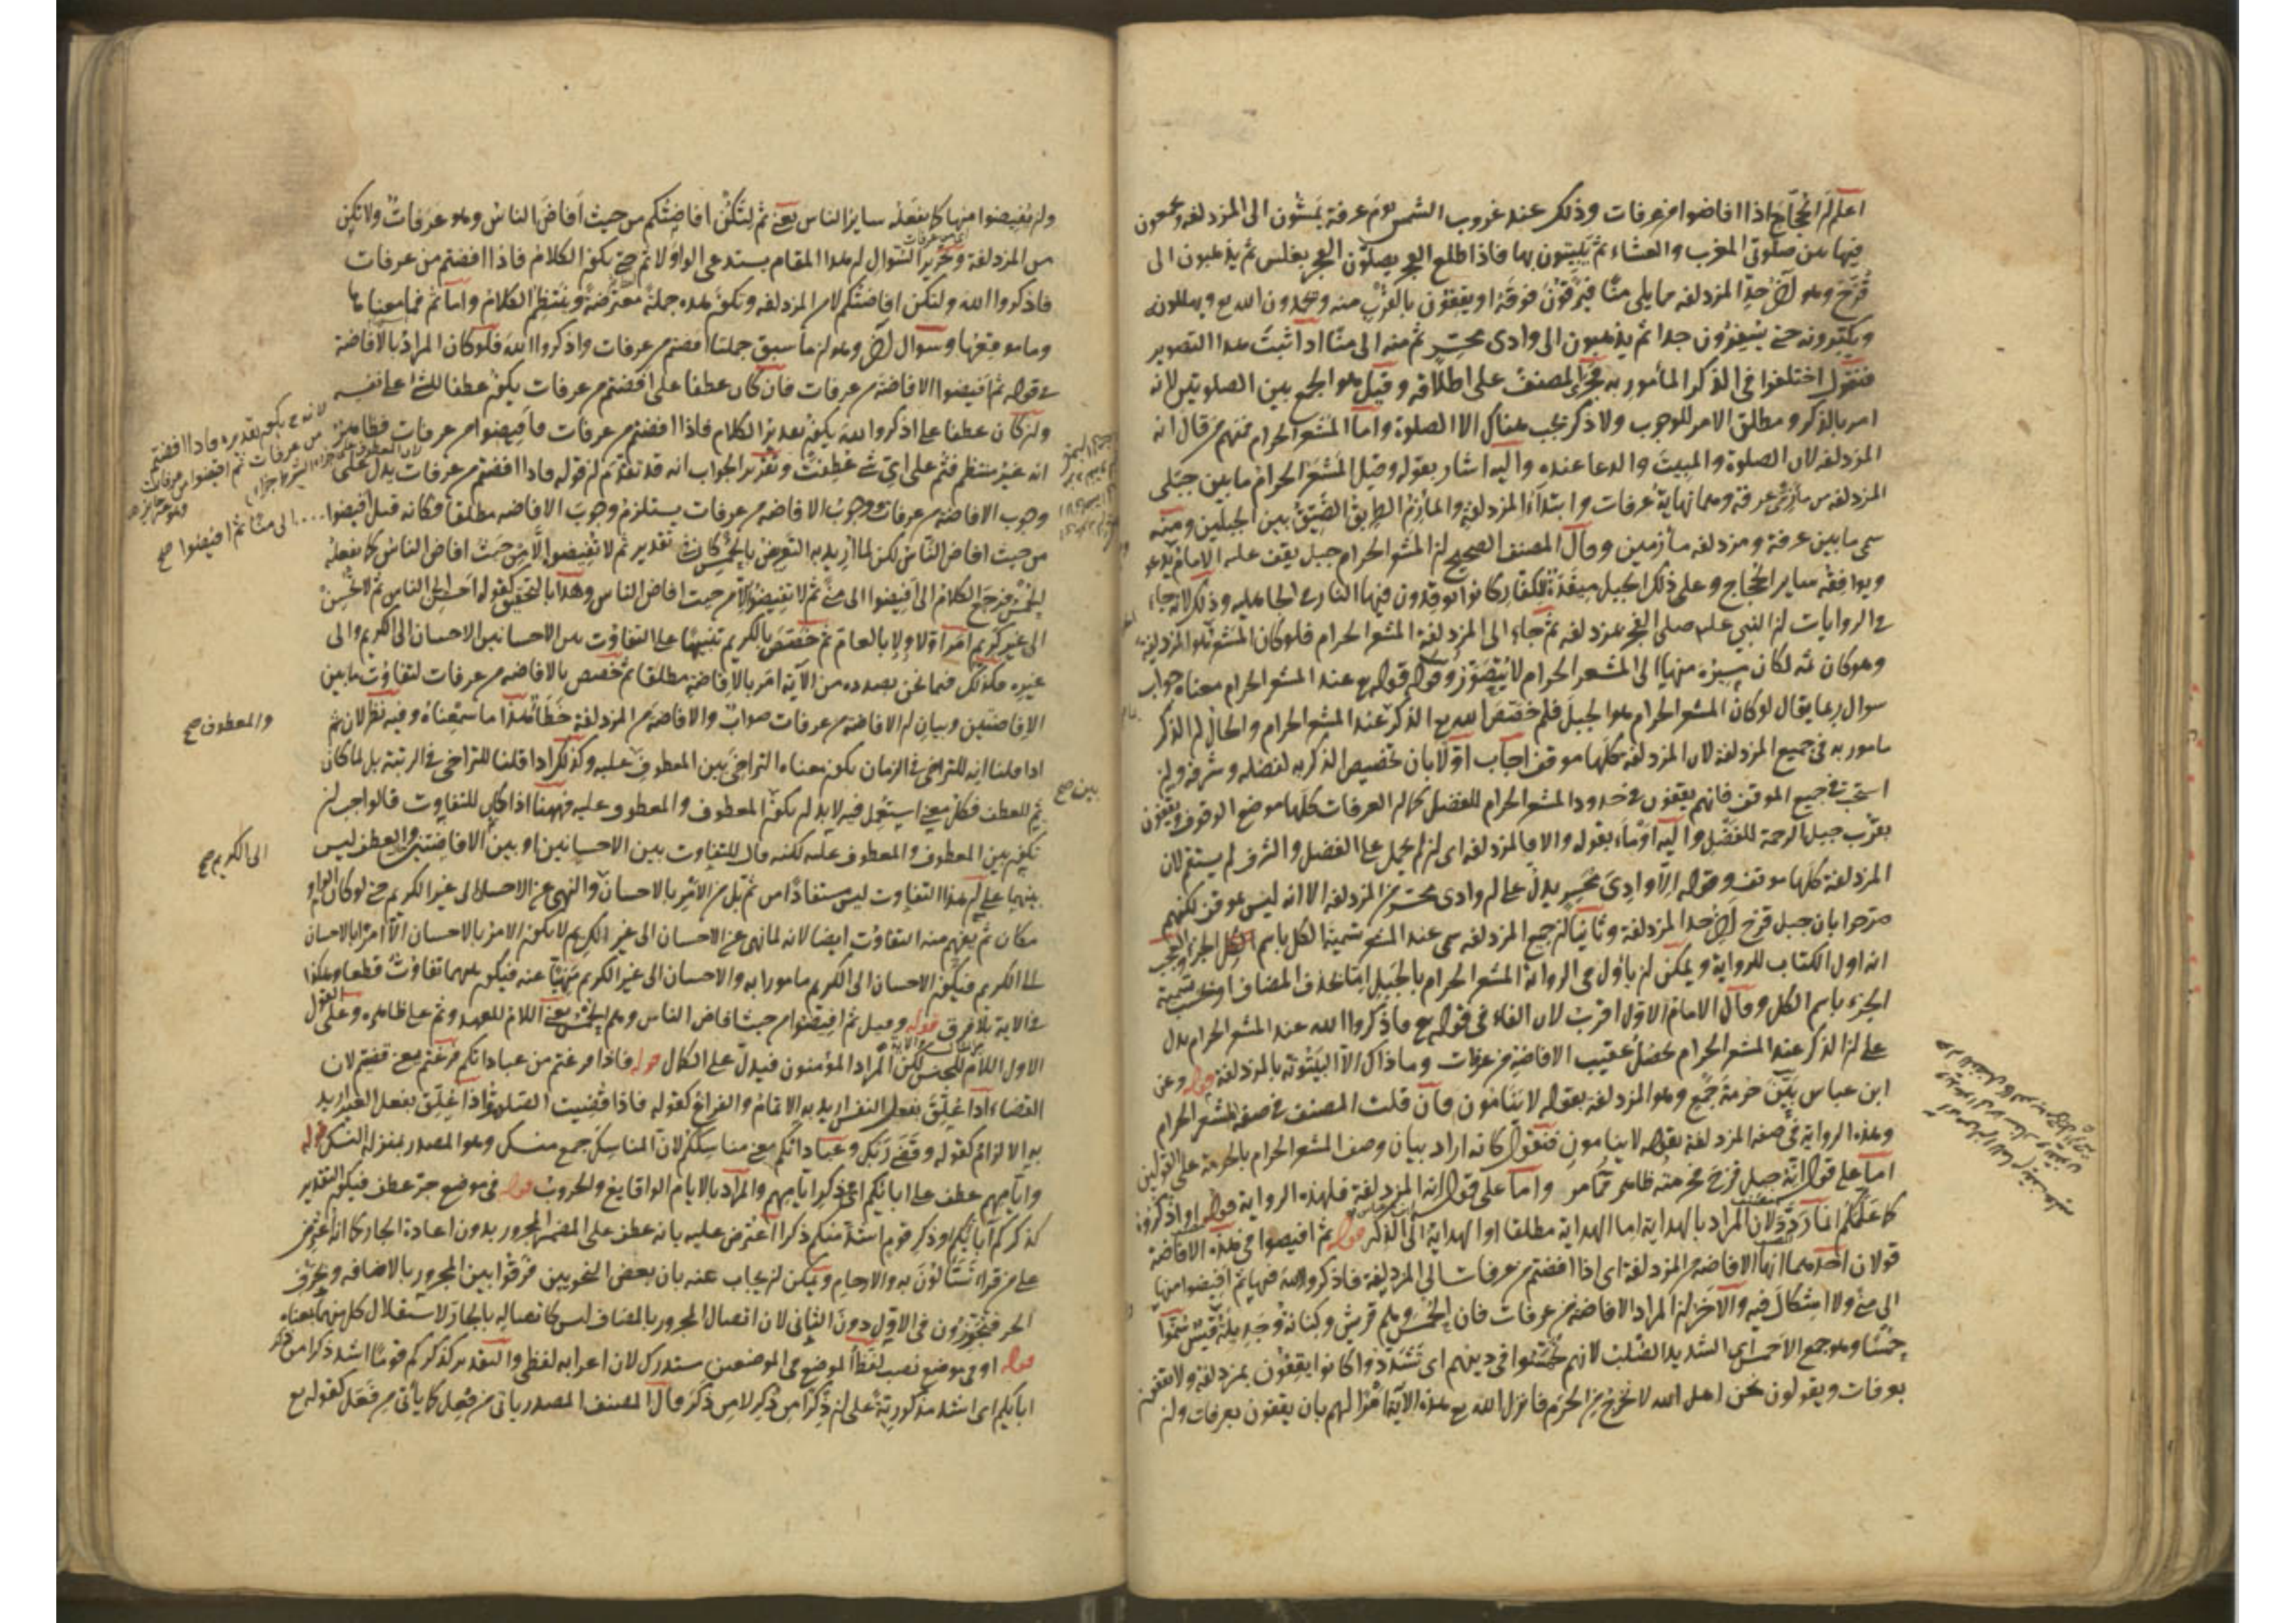 اعلم ان الحجاج اذا افاضوا من عرفات وذلك عند غروب الشمس يوم عرفة يمشون الى المزدلفة ويجمعون
فيها بين صلوتى المغرب والعشاء ثم يبيتون بها فاذا طلع الفجر يصلون الفجر بغلس ثم يذهبون الى
قزح وهو آخر حد المزدلفة مما يلى منا فيرقون فوقه او يقفون بالقرب منه ويحمدون الله تع ويهللونه
ويكبرونه حتى يسفرون جدا ثم يذهبون الى وادى محسر ثم منه الى منا اذا ثبت هذا التصوير
فنقول اختلفوا فى الذكر المأمور به فجرى المصنف على اطلاقه وقيل هو الجمع بين الصلوتين لانه
امر بالذكر ومطلق الامر للوجوب ولا ذكر يجب هناك الا الصلوة واما المشعر الحرام فمنهم من قال انه
المزدلفة لان الصلوة والمبيت والدعا عنده واليه اشار بقوله وقيل المشعر الحرام ما بين جبلى
المزدلفة من مأزمى عرفة وهما نهاية عرفات وابتداء المزدلفة والمأزم الطريق الضيق بين الجبلين ومنه
سمى ما بين عرفة ومزدلفة مأزمين وقال المصنف الصحيح ان المشعر الحرام جبل يقف عليه الامام
ويوافقه ساير الحجاج وعلى ذلك الجبل ميقدة للكفار كانوا يوقدون فيها النار فى الجاهلية وذلك لانه جاء
فى الروايات ان النبى عليه صلى الفجر بمزدلفة ثم جاء الى المشعر الحرام فلو كان المشعر هو المزدلفة
وهو كان ثمه لكان سيره منها الى المشعر الحرام لا يتصور وقوله تع عند المشعر الحرام معناه جواب
سوال ربما يقال لو كان المشعر الحرام هو الجبل فلم خصص الله تع الذكر عند المشعر الحرام والحال ان الذكر
مامور به فى جميع المزدلفة لان المزدلفة كلها موقف اجاب اولا بان تخصيص الذكر به لفضله وشرفه وان
استحب فى جميع الموقف فانهم يقفون فى حدود المشعر الحرام للفضل كما ان العرفات كلها موضع الوقوف ويقفون
بقرب جبل الرحمة للفضل واليه اومأ بقوله والا فالمزدلفة اى ان لم يحمل على الفضل والشرف لم يستقم لان
المزدلفة كلها موقف وقوله الا وادى محسر يدل على ان وادى محسر من المزدلفة الا انه ليس بموقف لكنهم
صرحوا بان جبل قزح آخر حد المزدلفة وثانيا ان جميع المزدلفة سمى عند المشعر تسمية الكل باسم الجزء
انه اول الكتاب للرواية ويمكن ان يأول فى الرواية المشعر الحرام بالجبل اما بحذف المضاف او بحسب تسمية
الجزء باسم الكل وقال الامام الاول اقرب لان الفاء فى قوله تع فاذكروا الله عند المشعر الحرام يدل
على ان الذكر عند المشعر الحرام يحصل عقيب الافاضة من عرفات وما ذاك الا البيتوتة بالمزدلفة قوله وعن
ابن عباس بين حرمة جمع وهو المزدلفة بقوله لا ينامون فان قلت المصنف فى صفة المشعر الحرام
وهذه الرواية فى صفة المزدلفة بقوله لا ينامون فنقول كانه اراد بيان وصف المشعر الحرام بالحرمة على القولين
اما على قوله انه جبل قزح فحرمته ظاهرة مما مر واما على قوله انه المزدلفة فلهذه الرواية قوله او اذكروه
كما علمكم انما ردد لان المراد بالهداية اما الهداية مطلقا او الهداية الى الذكر قوله ثم افيضوا فى هذه الافاضة
قولان احدهما انها الافاضة من المزدلفة اى اذا افضتم من عرفات الى المزدلفة فاذكروا الله فيها ثم افيضوا منها
الى منى ولا اشكال فيه والآخر ان المراد الافاضة من عرفات فان الحمس وهم قريش وكنانة وجديلة قيس سموا
حمسا وهو جمع الاحمس اى الشديد الصلب لانهم تحمسوا فى دينهم اى تشددوا كانوا يقفون بمزدلفة ولا يقفون
بعرفات ويقولون نحن اهل الله لا نخرج من الحرم فانزل الله تع هذه الآية امرا لهم بان يقفون بعرفات وان
وان يفيضوا منها كما يفعله ساير الناس يعنى ثم لتكن افاضتكم من حيث افاض الناس وهو عرفات ولا تكن
من المزدلفة وتحرير السوال ان هذا المقام يستدعى الواو لا ثم حتى يكون الكلام فاذا افضتم من عرفات
فاذكروا الله ولتكن افاضتكم لا من المزدلفة وتكون هذه جملة معترضة وينتظم الكلام واما ثم فما معناها
وما موقعها وسوال آخر وهو ان ما سبق جملتا افضتم من عرفات واذكروا الله فلو كان المراد بالافاضة
فى قوله ثم افيضوا الافاضة من عرفات فان كان عطفا على افضتم من عرفات يكون عطفا للشئ على نفسه
وان كان عطفا على اذكروا الله يكون تقدير الكلام فاذا افضتم من عرفات فأفيضوا من عرفات فظاهر
انه غير منتظم فثم على اى شئ عطفت وتقرير الجواب انه قد تقدم ان قوله فاذا افضتم من عرفات يدل على
وجوب الافاضة من عرفات ووجوب الافاضة من عرفات يستلزم وجوب الافاضة مطلقا فكانه قيل افيضوا
من حيث افاض الناس لكن لما اريد به التعريض بالحمس كان فى تقدير ثم لا تفيضوا الا من حيث افاض الناس كما يفعله
الحمس فرجع الكلام الى افيضوا الى منى ثم لا تفيضوا الا من حيث افاض الناس وهذا بالتحقيق كقوله احسن الى الناس ثم لا تحسن
الى غير كريم امر اولا بالعام ثم خصص بالكريم تنبيها على التفاوت بين الاحسانين الاحسان الى الكريم والى
غيره فكذلك فيما نحن بصدده من الآية امر بالافاضة مطلقا ثم خصص بالافاضة من عرفات لتفاوت ما بين
الافاضتين وبيان ان الافاضة من عرفات صواب والافاضة من المزدلفة خطأ هذا ما سمعناه وفيه نظر لان ثم
اذا قلنا انه للتراخى فى الزمان يكون معناه التراخى بين المعطوف عليه وكذلك اذا قلنا للتراخى فى الرتبة بل لما كان
ثم للعطف فكل معنى استعمل فيه لابد ان يكون المعطوف والمعطوف عليه فههنا اذا كان للتفاوت فالواجب ان
يكون بين المعطوف والمعطوف عليه لكنه قال للتفاوت بين الاحسانين او بين الافاضتين والعطف ليس
بينهما على ان هذا التفاوت ليس مستفادا من ثم بل من الامر بالاحسان والنهى عن الاحسان الى غير الكريم حتى لو كان الواو
مكان ثم يفهم منه التفاوت ايضا لانه لما نهى عن الاحسان الى غير الكريم لا يكون الامر بالاحسان الا امرا بالاحسان
الى الكريم فيكون الاحسان الى الكريم مامورا به والاحسان الى غير الكريم منهيا عنه فيكون بينهما تفاوت قطعا وهكذا
فى الاية بلا فرق قوله وقيل ثم افيضوا من حيث افاض الناس وهم الحمس يعنى اللام للعهد وثم على ظاهره وعلى القول
الاول اللام للجنس لكن المراد المؤمنون فيدل على الكمال قوله فاذا فرغتم من عباداتكم فرغتم يعنى قضيتم لان
القضاء اذا علق بفعل النفس اريد به الاتمام والفراغ كقوله فاذا قضيت الصلوة واذا علق بفعل الغير اريد
به الالزام كقوله وقضى ربك وعباداتكم معنى مناسككم لان المناسك جمع منسك وهو المصدر بمنزلة النسك قوله
وايامهم عطف على ابائكم اى ذكر ايامهم والمراد بالايام الوقايع والحروب قوله فى موضع جر عطف فيكون التقدير
كذكركم آبائكم او ذكر قوم اشد منكم ذكرا اعترض عليه بانه عطف على المضمر المجرور بدون اعادة الجار كما اعترض
على من قراء تساءلون به والارحام ويمكن ان يجاب عنه بان بعض النحويين فرقوا بين المجرور بالاضافة وبحرف
الجر فيجوزون فى الاول دون الثانى لان اتصال المجرور بالمضاف ليس كاتصاله بالجار لاستقلال كل منهما بمعناه
قوله او فى موضع نصب لفظ الموضع فى الموضعين مستدرك لان اعرابه لفظى والتقدير كذكركم قوما اشد ذكرا من
ابائكم اى اشد مذكورية على ان ذكرا من ذكر لا من ذكر قال المصنف المصدر ياتى من فعل كما يأتى من فعل كقوله تع
والمعطوف صح
بين صح
الى الكريم صح